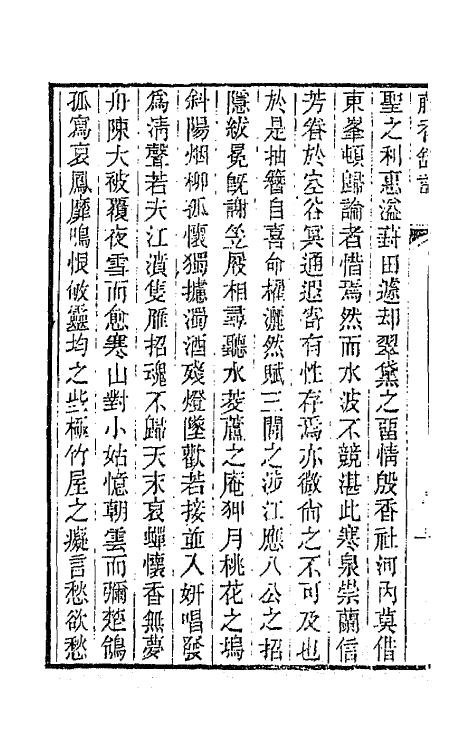 聖之利惠溢葑田遽却翠黛之畱情殷香社河内莫借
東峯頓歸論者惜焉然而水波不競湛此寒泉崇蘭信
芳眷於空谷冥通遐寄有性存焉亦微尙之不可及也
於是抽簪自喜命櫂灑然賦三閭之涉江應八公之招
隱紱冕旣謝笠屐相尋聽水菱蘆之庵狎月桃花之塢
斜陽烟柳孤懷獨攄濁酒殘燈墜歡若接並入妍唱發
爲淸聲若夫江濆隻雁招魂不歸天末哀蟬懷香無夢
舟陳大被覆夜雪而愈寒山對小姑憶朝雲而彌楚鴿
孤寫哀鳳靡鳴恨倣靈均之些極竹屋之癡言愁欲愁